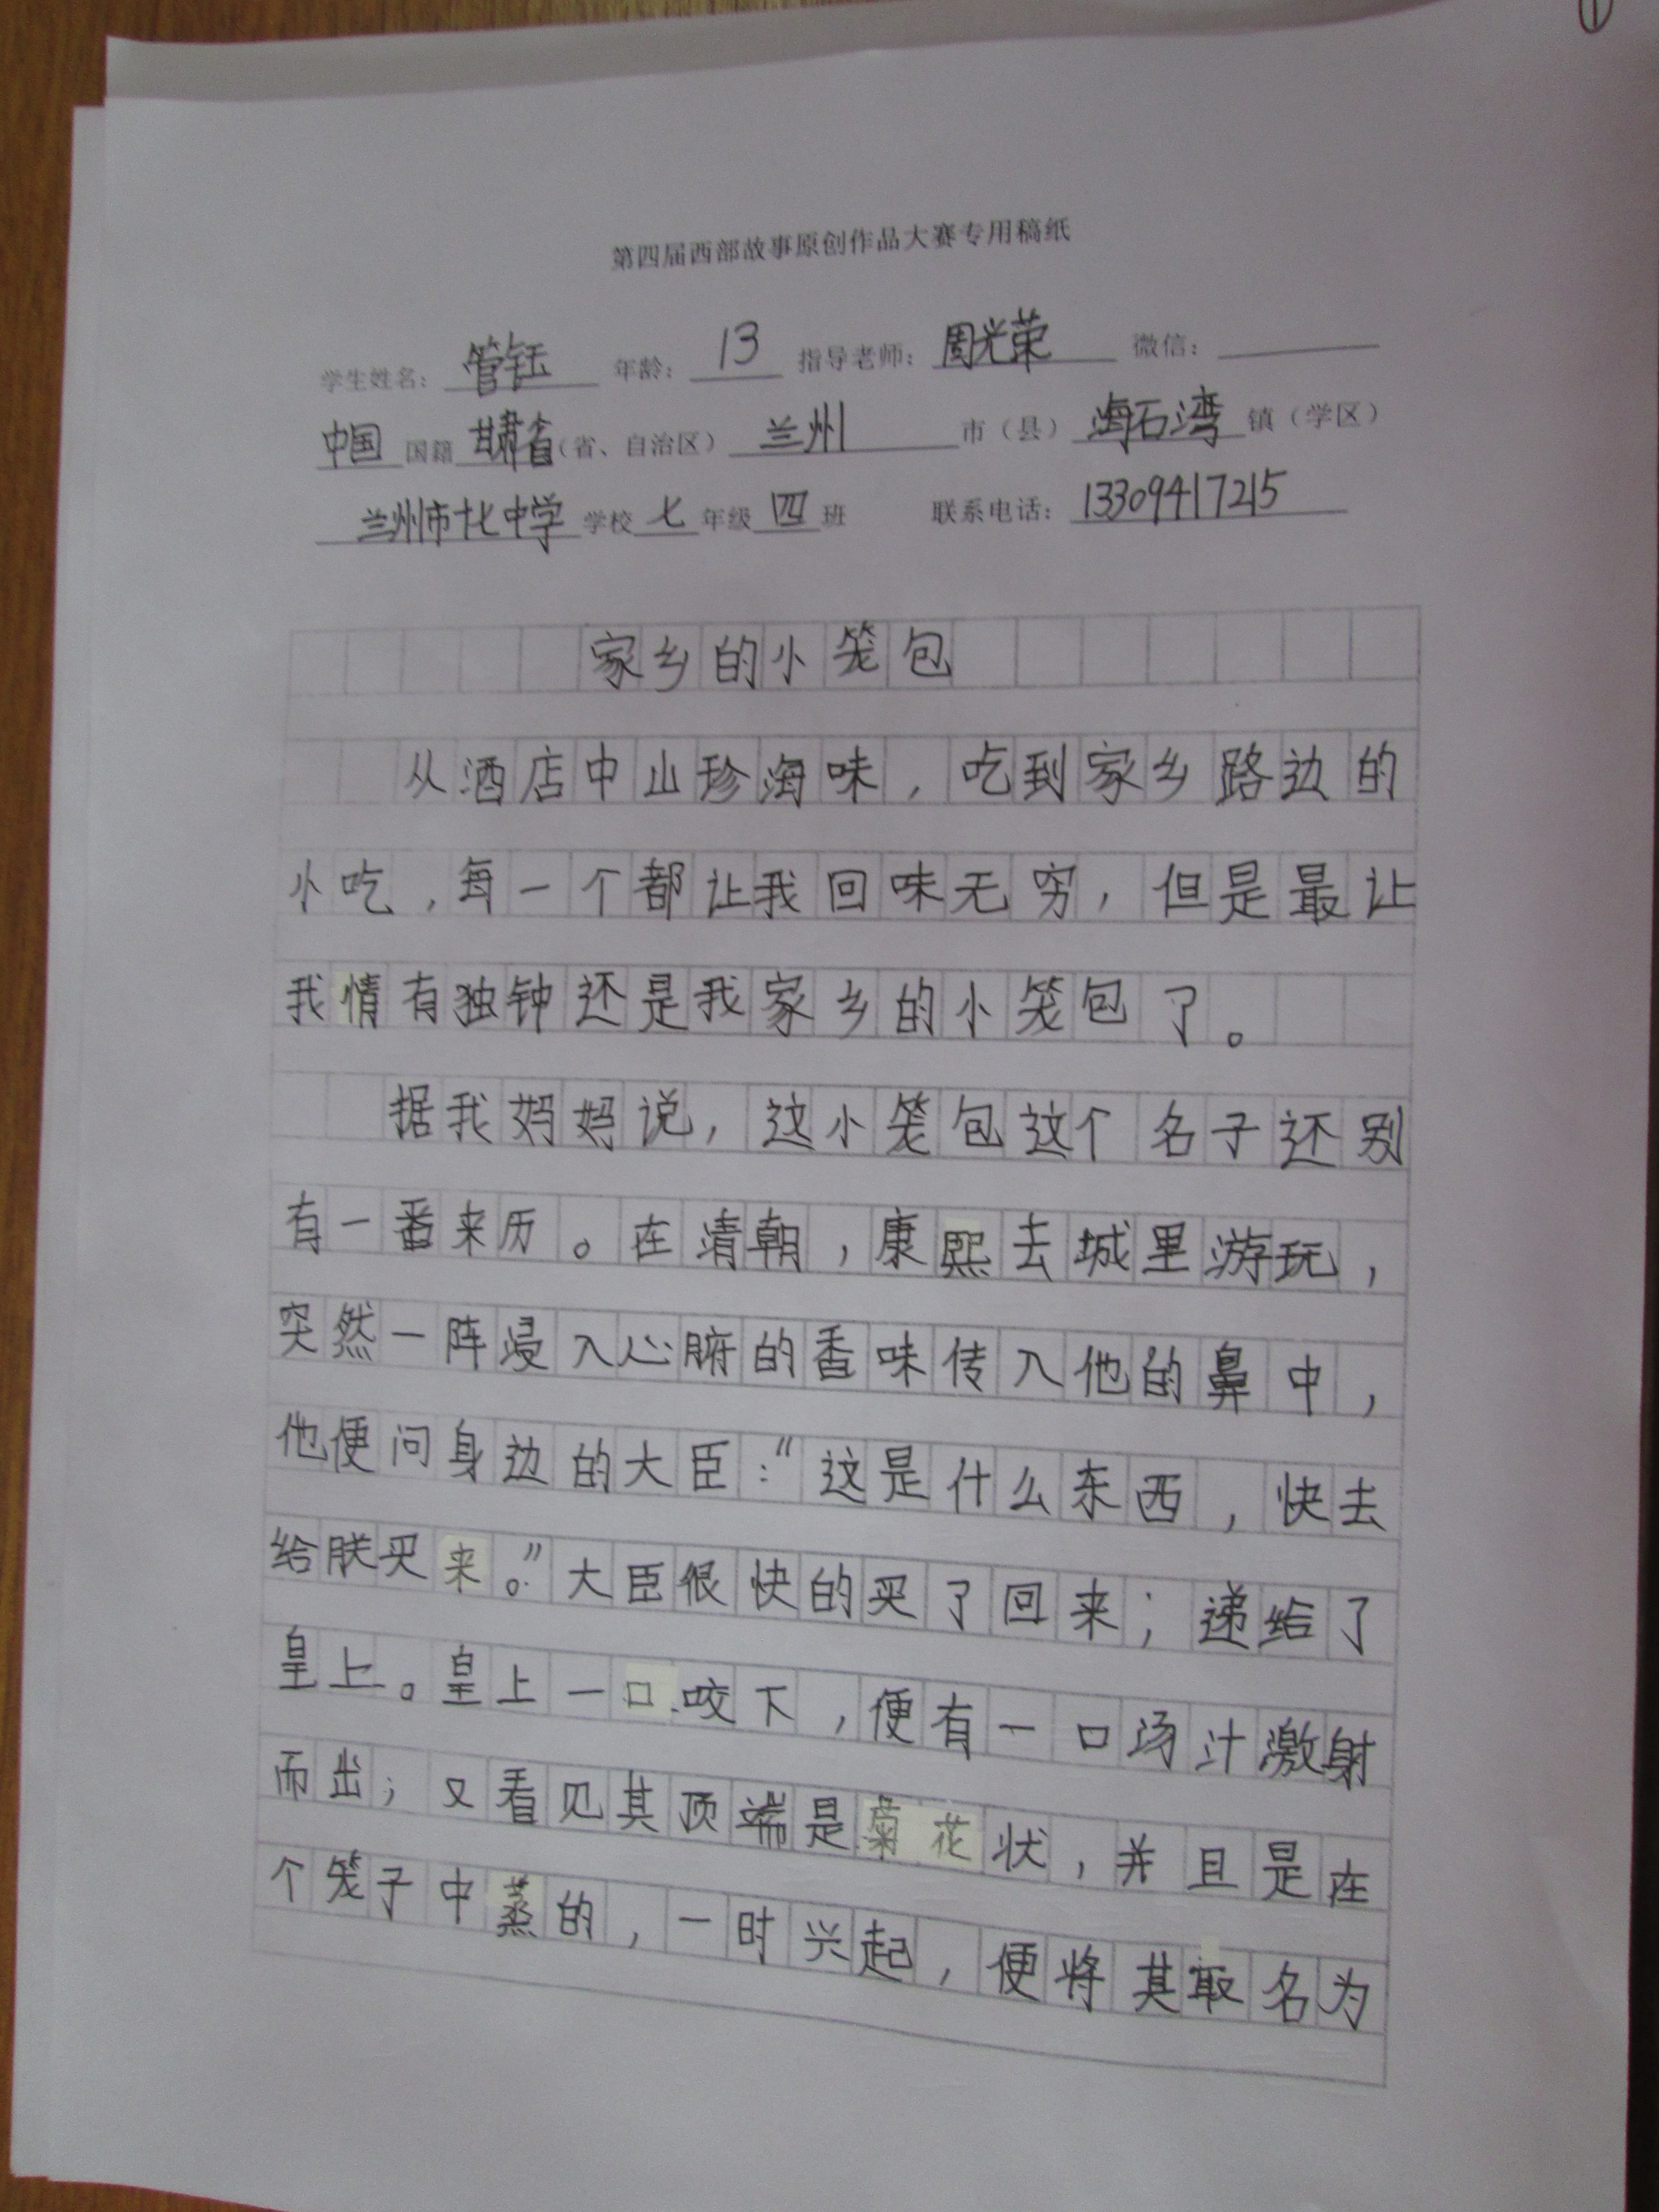 ①
第四届西部故事原创作品大赛专用稿纸
学生姓名：管钰 年龄：13 指导老师：周光荣 微信：
中国国籍 甘肃省（省、自治区） 兰州 市（县） 海石湾 镇（学区）
兰州市十七中学 学校 七 年级 四 班 联系电话：13309417215
家乡的小笼包
从酒店中山珍海味，吃到家乡路边的
小吃，每一个都让我回味无穷，但是最让
我情有独钟还是我家乡的小笼包了。
据我妈妈说，这小笼包这个名子还别
有一番来历。在清朝，康熙去城里游玩，
突然一阵浸入心腑的香味传入他的鼻中，
他便问身边的大臣：“这是什么东西，快去
给朕买来。”大臣很快的买了回来；递给了
皇上。皇上一口咬下，便有一口汤汁激射
而出；又看见其顶端是菊花状，并且是在
个笼子中蒸的，一时兴起，便将其取名为